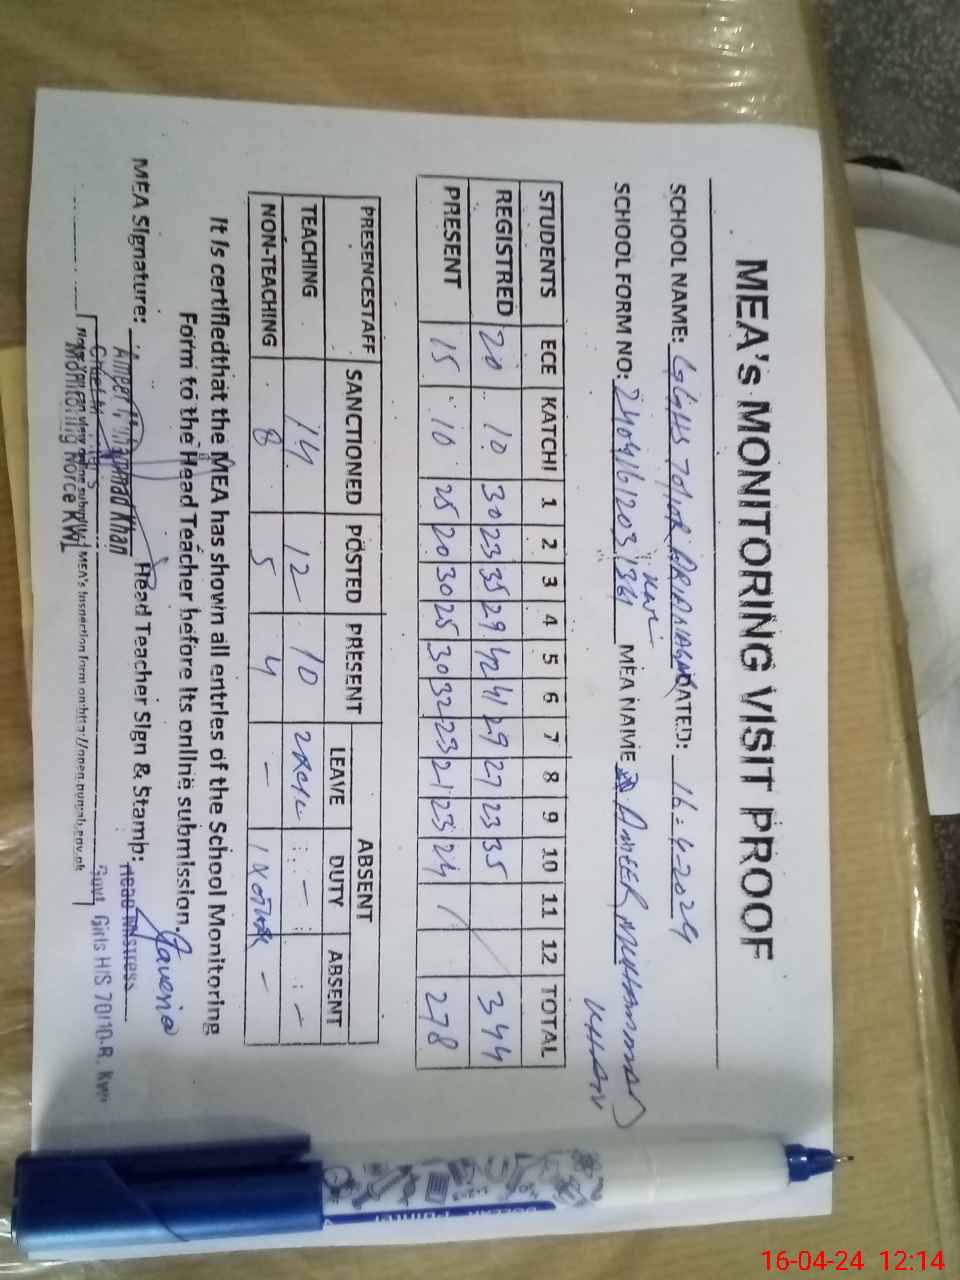 MEA's MONITORING VISIT PROOF
SCHOOL NAME: GGHS 70/10R DATED: 16-4-2024
SCHOOL FORM NO: MEA NAME AMEER MUHAMMAD
KHAN
STUDENTS ECE KATCHI 1 2 3 4 5 6 7 8 9 10 11 12 TOTAL
REGISTRED 20 10 30 23 35 29 42 41 29 27 23 35 344
PRESENT 15 10 25 20 30 25 30 32 23 21 23 24 278
PRESENCESTAFF SANCTIONED POSTED PRESENT ABSENT
LEAVE DUTY ABSENT
TEACHING 14 12 10 - -
NON-TEACHING 8 5 4 - -
It is certifiedthat the MEA has shown all entries of the School Monitoring
Form to the Head Teacher before its online submission.
MEA Signature: Head Teacher Sign & Stamp: Javeria
Ameer Muhammad Khan
Head Mistress
Monitoring Force KWL
Govt Girls H/S 70/10-R.
Note: You can view online submitted MEA's Inspection form on
16-04-24 12:14